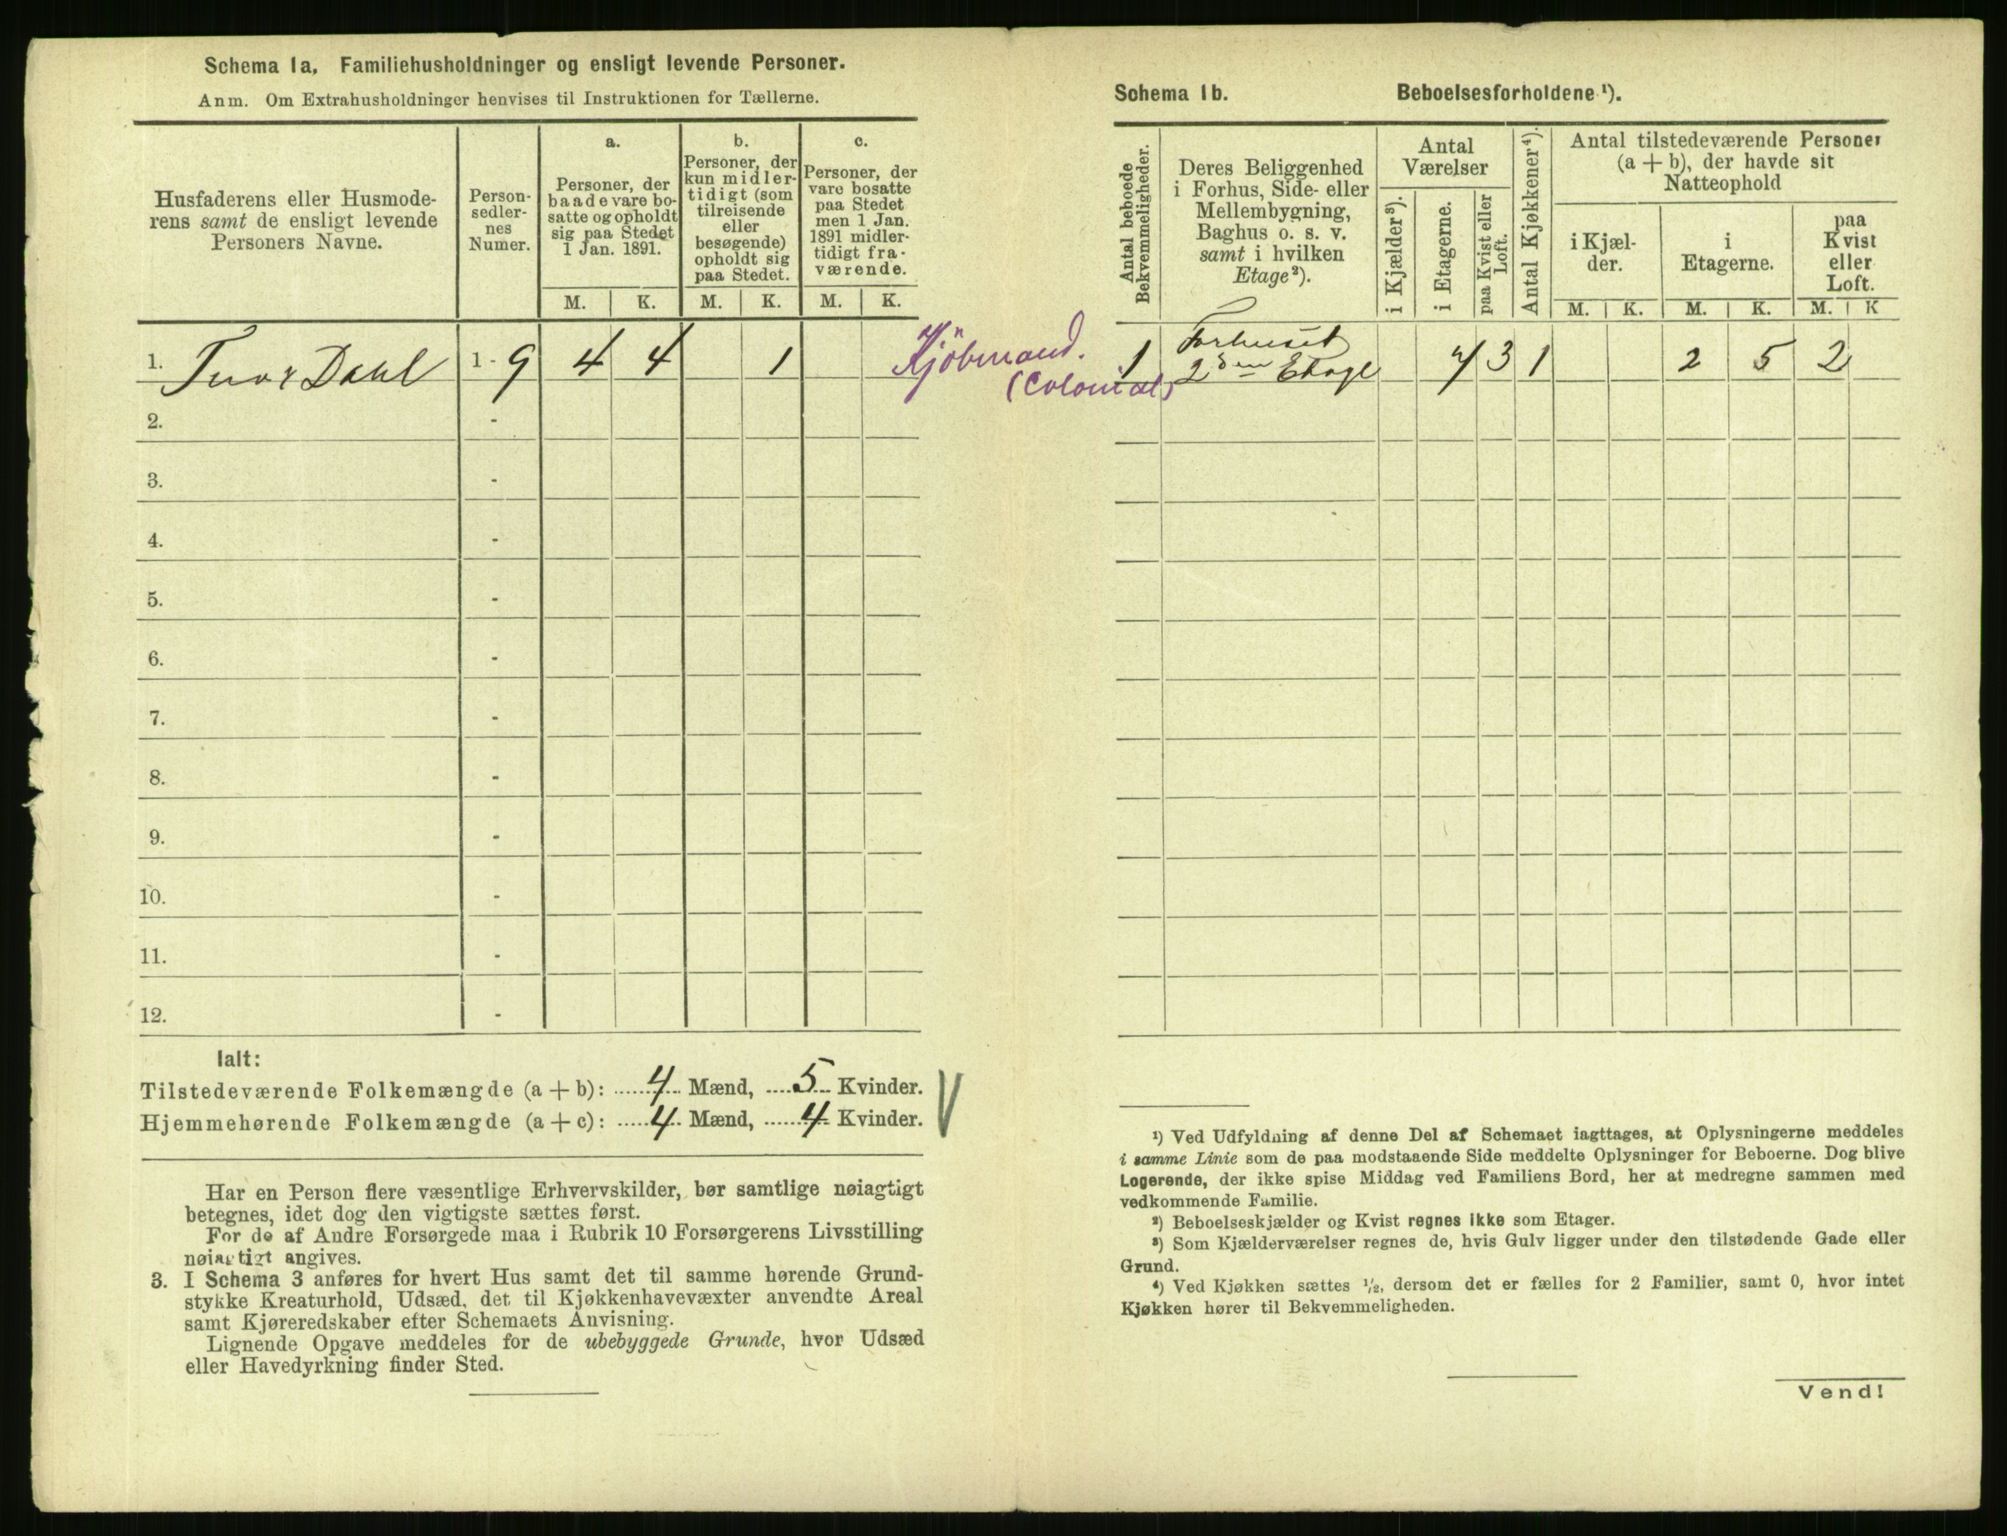 Schema 1a. Familiehusholdninger og ensligt levende Personer.
Anm. Om Extrahusholdninger henvises til Instruktionen for Tællerne.
Husfaderens eller Husmode-
rens samt de ensligt levende
Personers Navne.
Person-
sedler-
nes
Numer.
a.
Personer, der
baade vare bo-
satte og opholdt
sig paa Stedet
1 Jan. 1891.
M. K.
b.
Personer, der
kun midler-
tidigt (som
tilreisende
eller
besøgende)
opholdt sig
paa Stedet.
M. K.
c.
Personer, der
vare bosatte
paa Stedet
men 1 Jan.
1891 midler-
tidigt fra-
værende.
M. K.
1. Dahl 1 - 9 4 4 1
Kjöbmand.
(Colonial)
2. -
3. -
4. -
5. -
6. -
7. -
8. -
9. -
10. -
11. -
12. -
Ialt:
Tilstedeværende Folkemængde (a + b): 4 Mænd, 5 Kvinder.
Hjemmehørende Folkemængde (a + c): 4 Mænd, 4 Kvinder.
Har en Person flere væsentlige Erhvervskilder, bør samtlige nøiagtigt
betegnes, idet dog den vigtigste sættes først.
For de af Andre Forsørgede maa i Rubrik 10 Forsørgerens Livsstilling
nøiagtigt angives.
3. I Schema 3 anføres for hvert Hus samt det til samme hørende Grund-
stykke Kreaturhold, Udsæd, det til Kjøkkenhavevæxter anvendte Areal
samt Kjøreredskaber efter Schemaets Anvisning.
Lignende Opgave meddeles for de ubebyggede Grunde, hvor Udsæd
eller Havedyrkning finder Sted.
Schema 1b. Beboelsesforholdene ¹).
Antal beboede
Bekvemmeligheder.
Deres Beliggenhed
i Forhus, Side- eller
Mellembygning,
Baghus o. s. v.
samt i hvilken
Etage²).
Antal
Værelser
i Kjælder³).
i Etagerne.
paa Kvist eller
Loft.
Antal Kjøkkener⁴).
Antal tilstedeværende Personer
(a + b), der havde sit
Natteophold
i Kjæl-
der.
M. K.
i
Etagerne.
M. K.
paa
Kvist
eller
Loft.
M. K
1 Forhuset
2den Etage 4 3 1 2 5 2
¹) Ved Udfyldning af denne Del af Schemaet iagttages, at Oplysningerne meddeles
i samme Linie som de paa modstaaende Side meddelte Oplysninger for Beboerne. Dog blive
Logerende, der ikke spise Middag ved Familiens Bord, her at medregne sammen med
vedkommende Familie.
²) Beboelseskjælder og Kvist regnes ikke som Etager.
³) Som Kjælderværelser regnes de, hvis Gulv ligger under den tilstødende Gade eller
Grund.
⁴) Ved Kjøkken sættes ½, dersom det er fælles for 2 Familier, samt 0, hvor intet
Kjøkken hører til Bekvemmeligheden.
Vend!